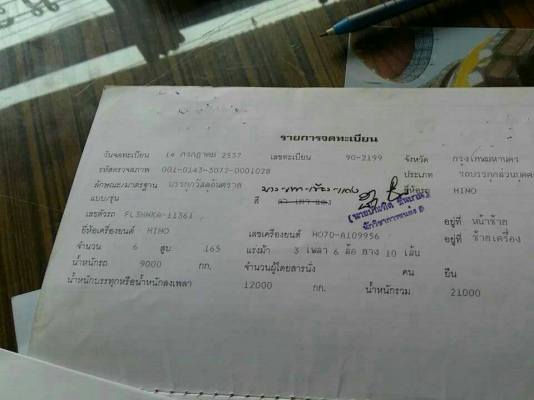 รายการจดทะเบียน
วันจดทะเบียน 14 กรกฎาคม 2537 เลขทะเบียน 90-2199 จังหวัด กรุงเทพมหานคร
รหัสตรวจสภาพ 001-0143-3077-0001028 ประเภท รถบรรทุกส่วนบุคคล
ลักษณะ/มาตรฐาน บรรทุกวัสดุอันตราย ยี่ห้อรถ HINO
แบบ/รุ่น สี
เลขตัวรถ FL3HNKA-11361 อยู่ที่ หน้าซ้าย
นักวิชาการขนส่ง
ยี่ห้อเครื่องยนต์ HINO เลขเครื่องยนต์ HO7D-A109956 อยู่ที่ ซ้ายเครื่อง
จำนวน 6 สูบ 165 แรงม้า 3 เพลา 6 ล้อ ยาง 10 เส้น
น้ำหนักรถ 9000 กก. จำนวนผู้โดยสารนั่ง คน ยืน
น้ำหนักบรรทุกหรือน้ำหนักลงเพลา 12000 กก. น้ำหนักรวม 21000